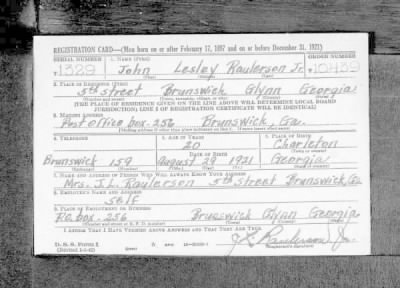 REGISTRATION CARD—(Men born on or after February 17, 1897 and on or before December 31, 1921)
SERIAL NUMBER 1. NAME (Print) ORDER NUMBER
T 1329 John Lesley Raulerson Jr. T 10439
2. PLACE OF RESIDENCE (Print)
5th street Brunswick Glynn Georgia
(Number and street) (Town, township, village, or city) (County) (State)
[THE PLACE OF RESIDENCE GIVEN ON THE LINE ABOVE WILL DETERMINE LOCAL BOARD
JURISDICTION; LINE 2 OF REGISTRATION CERTIFICATE WILL BE IDENTICAL]
3. MAILING ADDRESS
Post office box. 256 Brunswick, Ga.
[Mailing address if other than place indicated on line 2. If same insert word same]
4. TELEPHONE 5. AGE IN YEARS 6. PLACE OF BIRTH
20 Charleton
DATE OF BIRTH (Town or county)
Brunswick 159 August 29 1921 Georgia
(Exchange) (Number) (Mo.) (Day) (Yr.) (State or country)
7. NAME AND ADDRESS OF PERSON WHO WILL ALWAYS KNOW YOUR ADDRESS
Mrs. J.L. Raulerson 5th Street Brunswick, Ga
8. EMPLOYER'S NAME AND ADDRESS
self
9. PLACE OF EMPLOYMENT OR BUSINESS
P.O. box. 256 Brunswick Glynn Georgia
(Number and street or R. F. D. number) (Town) (County) (State)
I AFFIRM THAT I HAVE VERIFIED ABOVE ANSWERS AND THAT THEY ARE TRUE.
D. S. S. Form 1
(Revised 1-1-42) (over) J. L. Raulerson Jr.
(Registrant's signature)